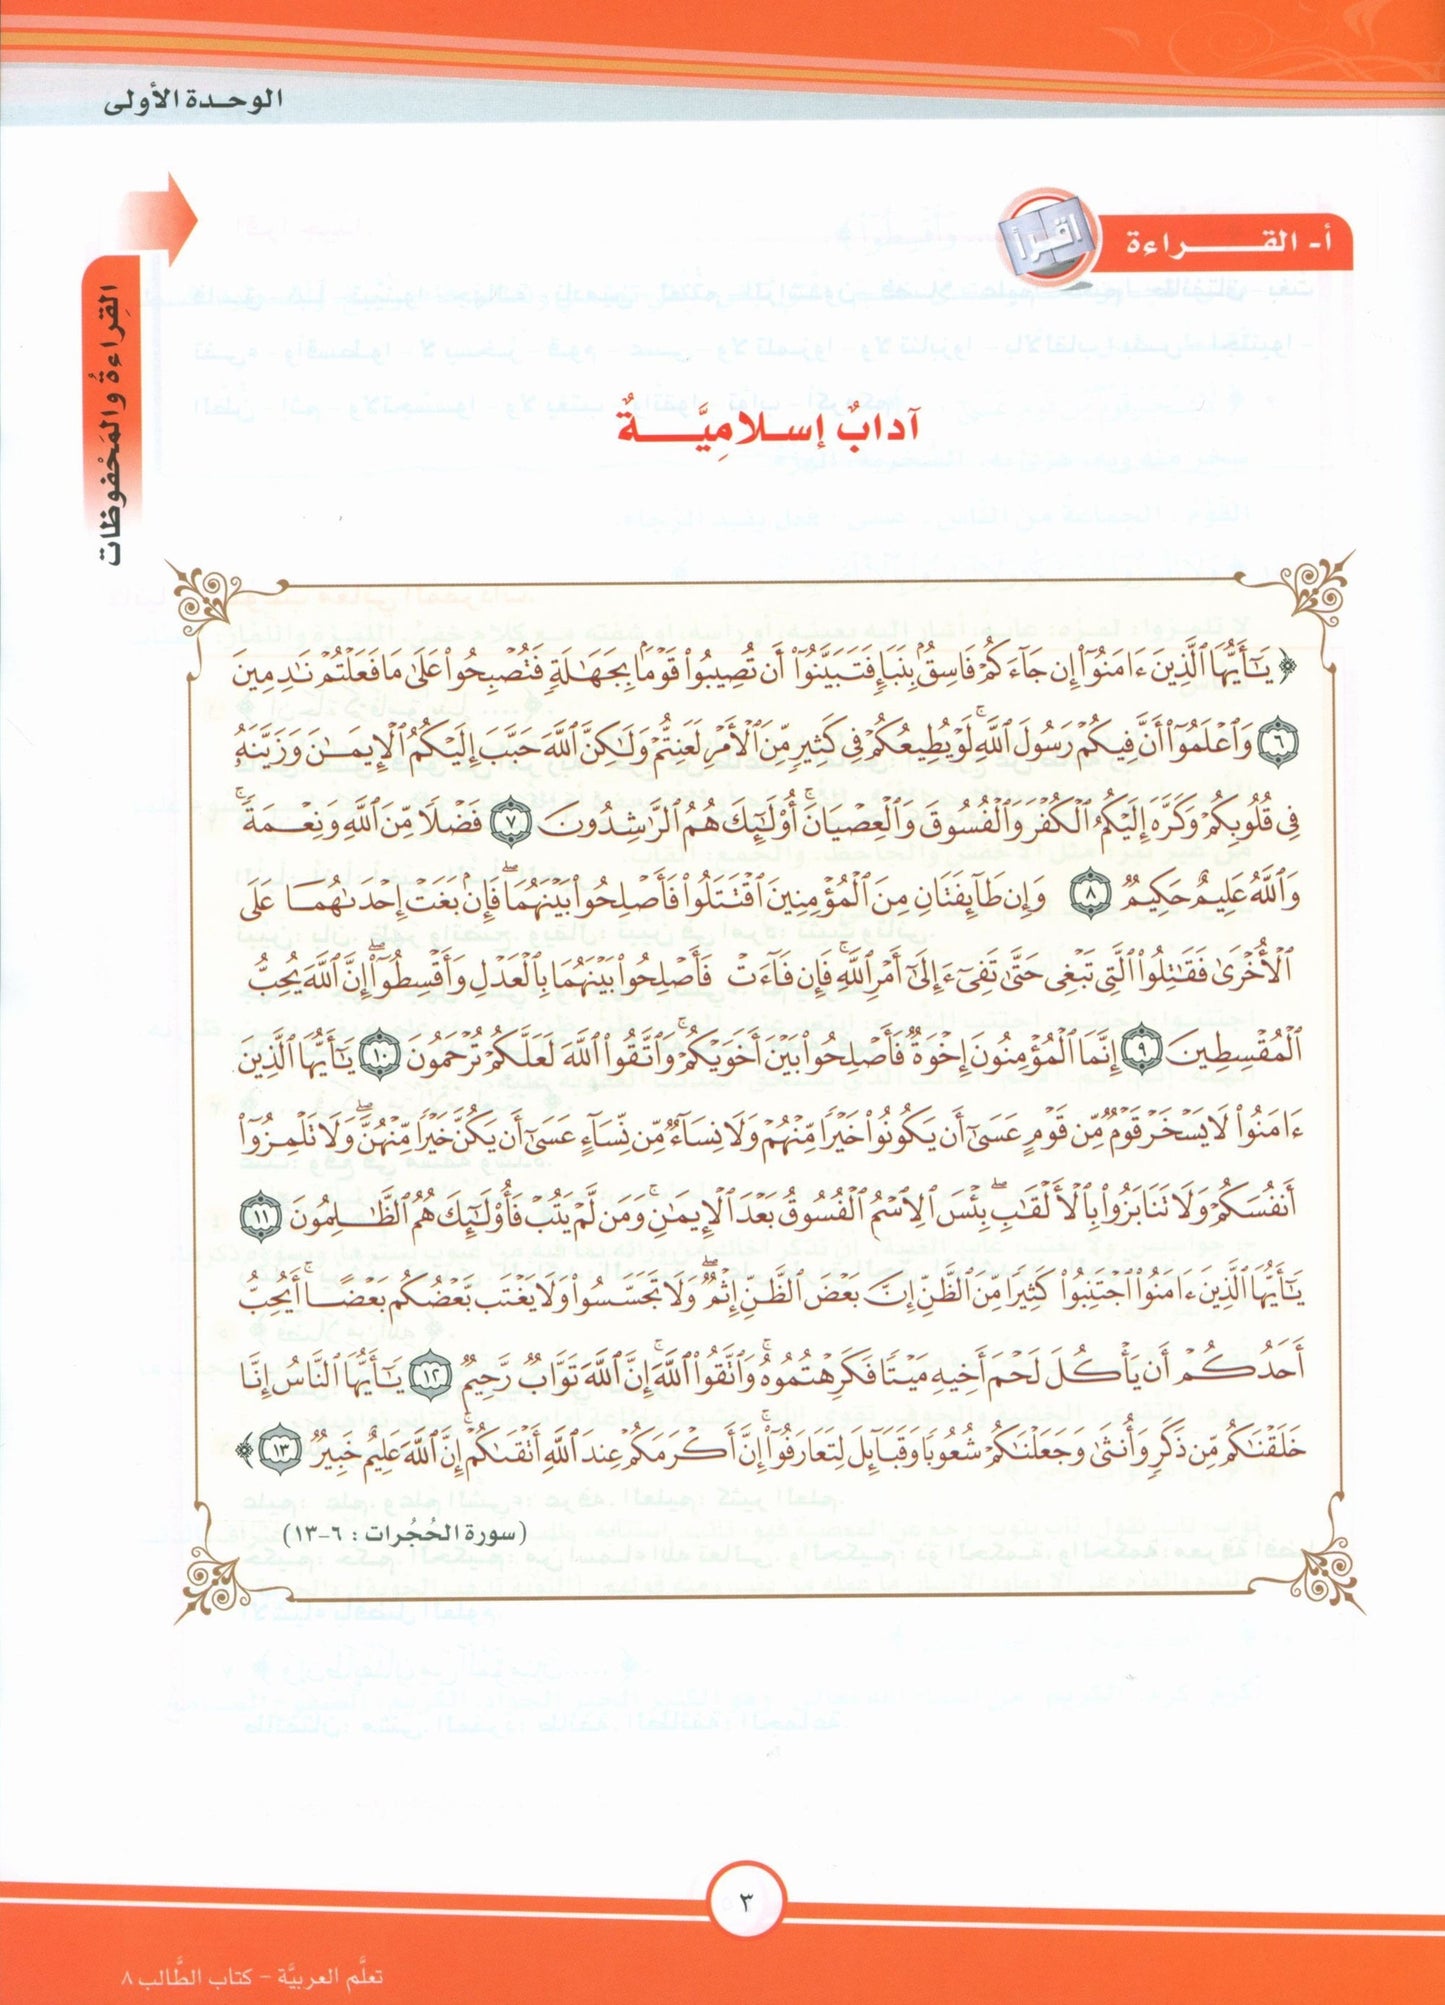 الوحدة الأولى
أ- القـــراءة
اقرأ
القِراءةُ والمَحْفوظات
آدابٌ إسلامِيَّــةٌ
﴿ يَٰٓأَيُّهَا ٱلَّذِينَ ءَامَنُوٓا۟ إِن جَآءَكُمْ فَاسِقٌۢ بِنَبَإٍ فَتَبَيَّنُوٓا۟ أَن تُصِيبُوا۟ قَوْمًۢا بِجَهَٰلَةٍ فَتُصْبِحُوا۟ عَلَىٰ مَا فَعَلْتُمْ نَٰدِمِينَ
٦ وَٱعْلَمُوٓا۟ أَنَّ فِيكُمْ رَسُولَ ٱللَّهِ ۚ لَوْ يُطِيعُكُمْ فِى كَثِيرٍ مِّنَ ٱلْأَمْرِ لَعَنِتُّمْ وَلَٰكِنَّ ٱللَّهَ حَبَّبَ إِلَيْكُمُ ٱلْإِيمَٰنَ وَزَيَّنَهُۥ
فِى قُلُوبِكُمْ وَكَرَّهَ إِلَيْكُمُ ٱلْكُفْرَ وَٱلْفُسُوقَ وَٱلْعِصْيَانَ ۚ أُو۟لَٰٓئِكَ هُمُ ٱلرَّٰشِدُونَ ٧ فَضْلًا مِّنَ ٱللَّهِ وَنِعْمَةً ۚ
وَٱللَّهُ عَلِيمٌ حَكِيمٌ ٨ وَإِن طَآئِفَتَانِ مِنَ ٱلْمُؤْمِنِينَ ٱقْتَتَلُوا۟ فَأَصْلِحُوا۟ بَيْنَهُمَا ۖ فَإِنۢ بَغَتْ إِحْدَىٰهُمَا عَلَى
ٱلْأُخْرَىٰ فَقَٰتِلُوا۟ ٱلَّتِى تَبْغِى حَتَّىٰ تَفِىٓءَ إِلَىٰٓ أَمْرِ ٱللَّهِ ۚ فَإِن فَآءَتْ فَأَصْلِحُوا۟ بَيْنَهُمَا بِٱلْعَدْلِ وَأَقْسِطُوٓا۟ ۖ إِنَّ ٱللَّهَ يُحِبُّ
ٱلْمُقْسِطِينَ ٩ إِنَّمَا ٱلْمُؤْمِنُونَ إِخْوَةٌ فَأَصْلِحُوا۟ بَيْنَ أَخَوَيْكُمْ ۚ وَٱتَّقُوا۟ ٱللَّهَ لَعَلَّكُمْ تُرْحَمُونَ ١٠ يَٰٓأَيُّهَا ٱلَّذِينَ
ءَامَنُوا۟ لَا يَسْخَرْ قَوْمٌ مِّن قَوْمٍ عَسَىٰٓ أَن يَكُونُوا۟ خَيْرًا مِّنْهُمْ وَلَا نِسَآءٌ مِّن نِّسَآءٍ عَسَىٰٓ أَن يَكُنَّ خَيْرًا مِّنْهُنَّ ۖ وَلَا تَلْمِزُوٓا۟
أَنفُسَكُمْ وَلَا تَنَابَزُوا۟ بِٱلْأَلْقَٰبِ ۖ بِئْسَ ٱلِٱسْمُ ٱلْفُسُوقُ بَعْدَ ٱلْإِيمَٰنِ ۚ وَمَن لَّمْ يَتُبْ فَأُو۟لَٰٓئِكَ هُمُ ٱلظَّٰلِمُونَ ١١
يَٰٓأَيُّهَا ٱلَّذِينَ ءَامَنُوا۟ ٱجْتَنِبُوا۟ كَثِيرًا مِّنَ ٱلظَّنِّ إِنَّ بَعْضَ ٱلظَّنِّ إِثْمٌ ۖ وَلَا تَجَسَّسُوا۟ وَلَا يَغْتَب بَّعْضُكُم بَعْضًا ۚ أَيُحِبُّ
أَحَدُكُمْ أَن يَأْكُلَ لَحْمَ أَخِيهِ مَيْتًا فَكَرِهْتُمُوهُ ۚ وَٱتَّقُوا۟ ٱللَّهَ ۚ إِنَّ ٱللَّهَ تَوَّابٌ رَّحِيمٌ ١٢ يَٰٓأَيُّهَا ٱلنَّاسُ إِنَّا
خَلَقْنَٰكُم مِّن ذَكَرٍ وَأُنثَىٰ وَجَعَلْنَٰكُمْ شُعُوبًا وَقَبَآئِلَ لِتَعَارَفُوٓا۟ ۚ إِنَّ أَكْرَمَكُمْ عِندَ ٱللَّهِ أَتْقَىٰكُمْ ۚ إِنَّ ٱللَّهَ عَلِيمٌ خَبِيرٌ ١٣ ﴾
(سورة الحُجُرات : ٦-١٣)
٣
تعلَّم العربيَّة – كتاب الطَّالب ٨